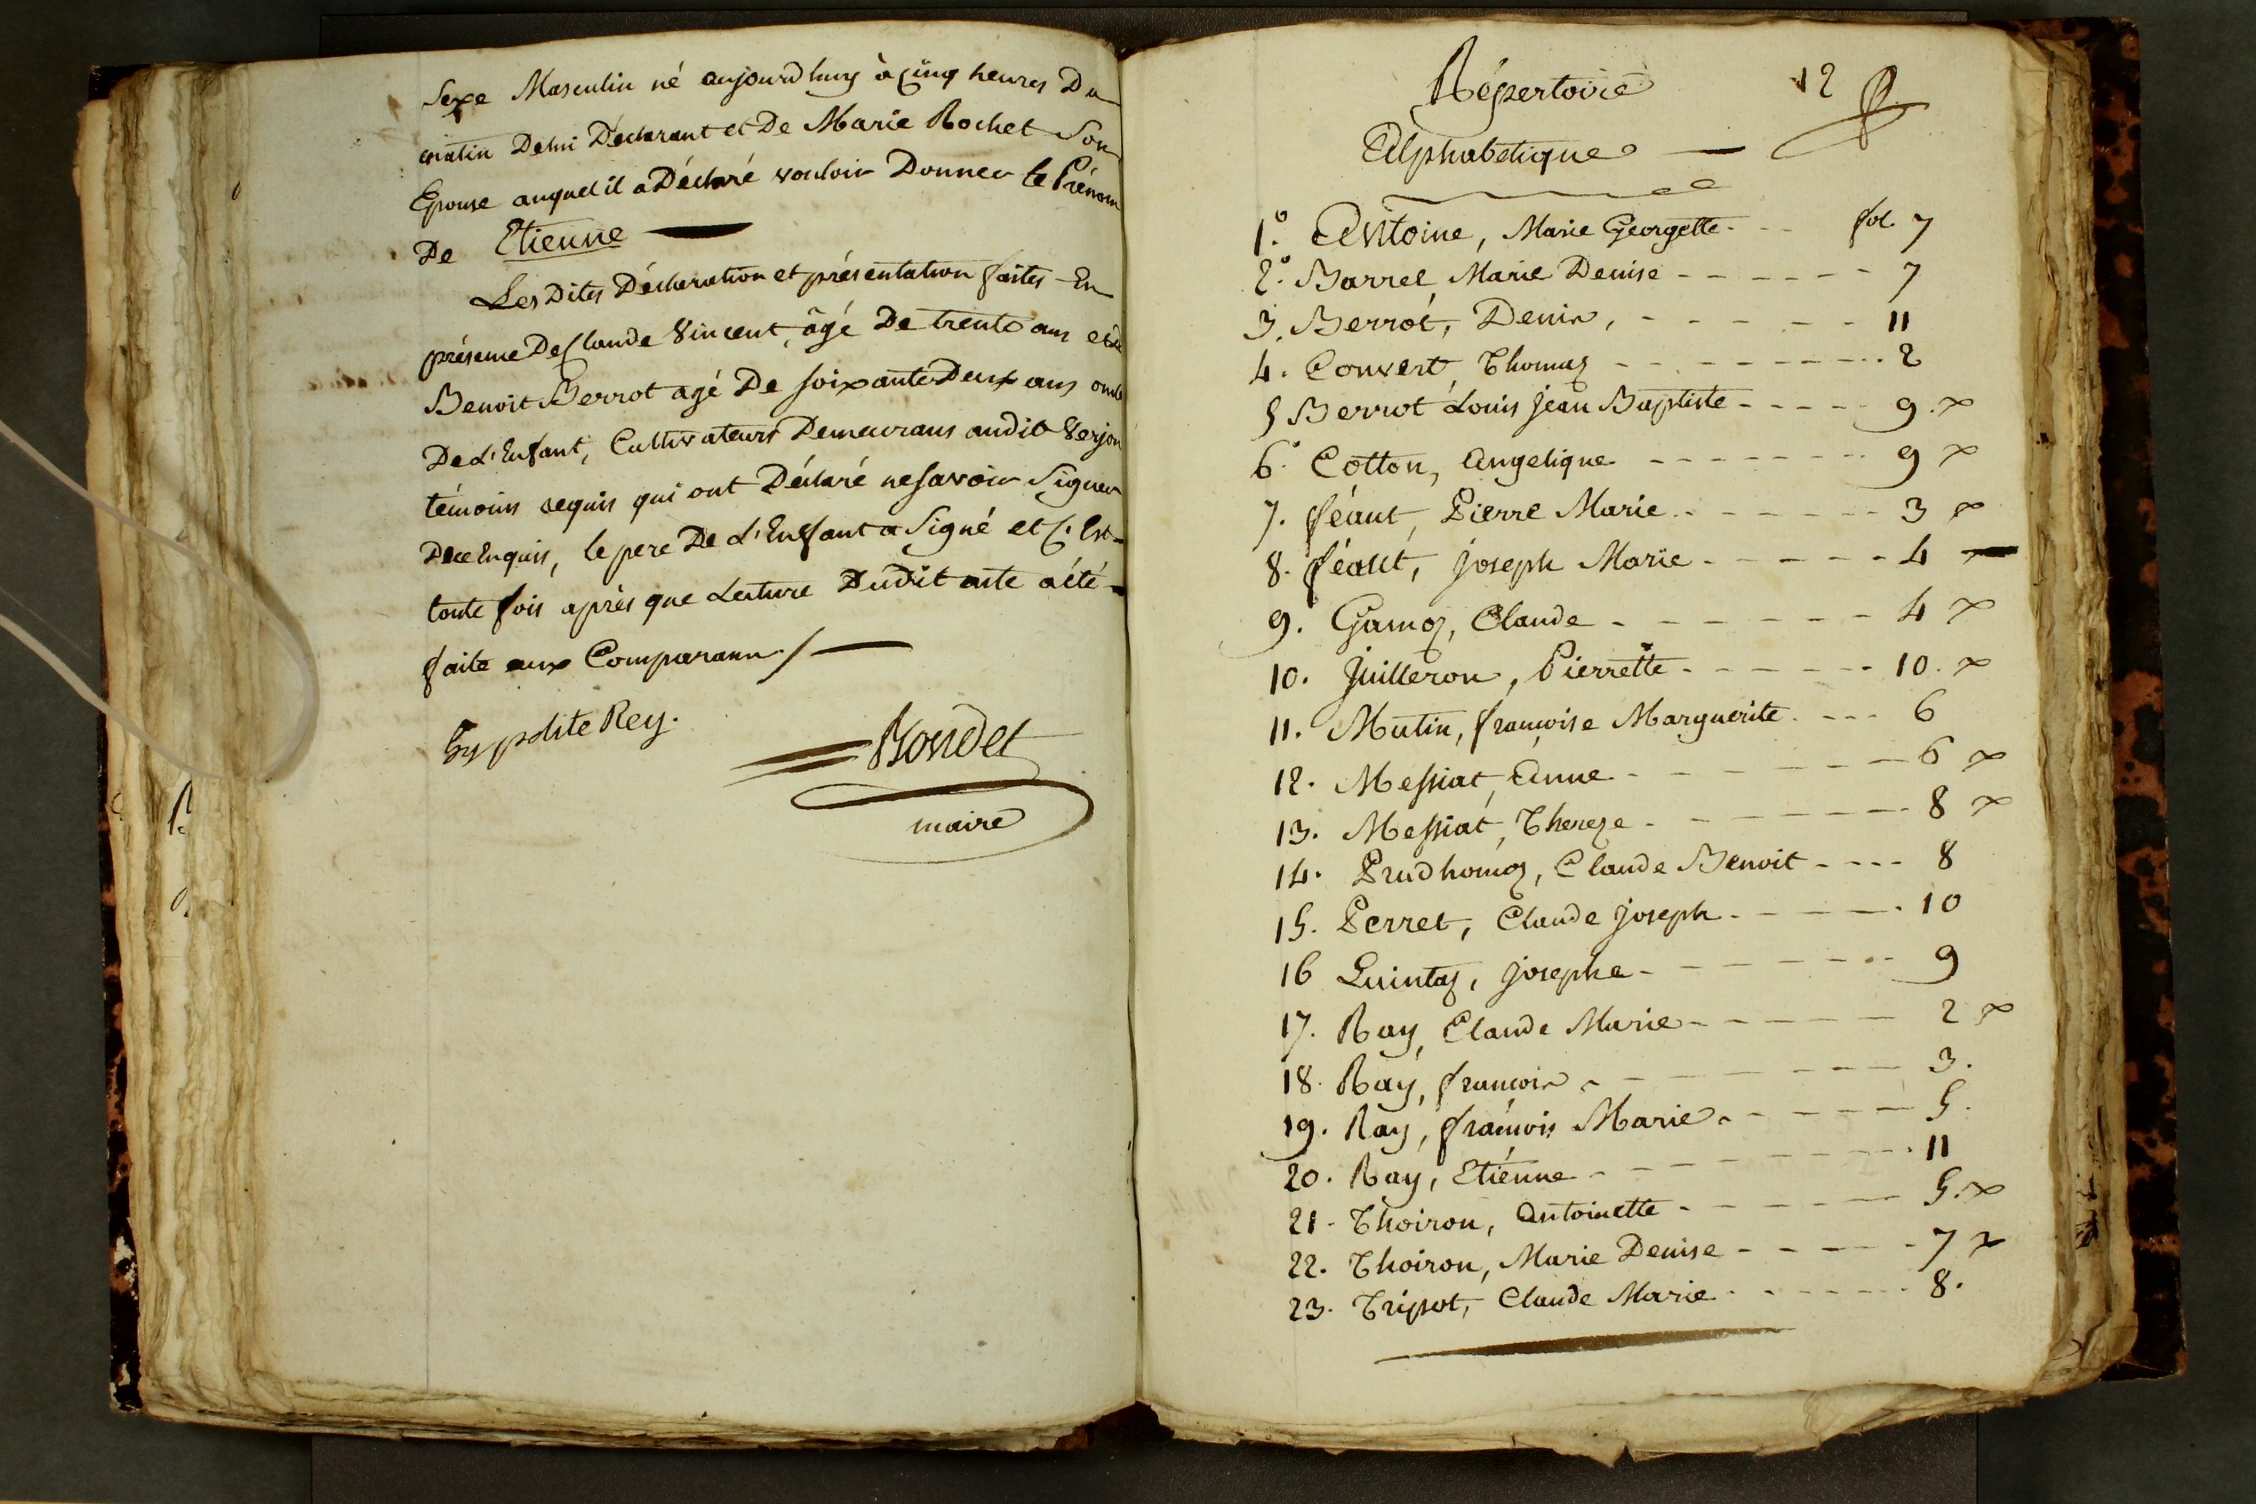 Sexe Masculin né aujourd'huy à cinq heures Du
matin De lui Déclarant et De Marie Rochet Son
Epouse auquel il a Déclaré vouloir Donner le Prénom
De Etienne
Les Dites Déclaration et présentation faites En
présence De Claude Vincent, âgé De trente ans et de
Benoit Berrot agé De soixante Deux ans oncle
De L'Enfant, Cultivateurs Demeurans audit Verjon
témoins requis qui ont Déclaré ne savoir Signer
De ce Enquis, le pere De L'Enfant a Signé et C. Est
toute fois après que Lecture Dudit acte a été
faite aux Comparans /
hypolite Rey.
Rondet
maire
Répertoire 12
Alphabetique
1.° Antoine, Marie Georgette - - fol. 7
2.° Barrel, Marie Denise - - - - - - 7
3. Berrot, Denis, - - - - - - 11
4. Convert, Thomas - - - - - - - 2
5 Berrot Louis Jean Baptiste - - - - - 9. x
6.° Cotton, Angelique - - - - - - - 9 x
7. féaut, Pierre Marie - - - - - - 3 x
8. féaut, Joseph Marie - - - - - - 4
9. Gamoz, Claude - - - - - - - 4 x
10. Juilleron, Pierrette - - - - - - 10. x
11. Mutin, françoise Marguerite - - - 6
12. Messiat, Anne - - - - - - - 6 x
13. Messiat, Thereze - - - - - - - 8 x
14. Prudhomoz, Claude Benoit - - - - 8
15. Perret, Claude Joseph - - - - - 10
16 Quintaz, Josephe - - - - - - 9
17. Ray, Claude Marie - - - - - - 2 x
18. Ray, françois - - - - - - - 3.
19. Ray, françois Marie - - - - - - 5.
20. Ray, Etienne - - - - - - - 11
21. Thoiron, Antoinette - - - - - - 5. x
22. Thoiron, Marie Denise - - - - - 7 x
23. Tripot, Claude Marie - - - - - - 8.